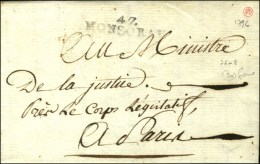 47
MONSURAT
Au Ministre
De la justice.
Près Le Corps Législatif,
A Paris
1796